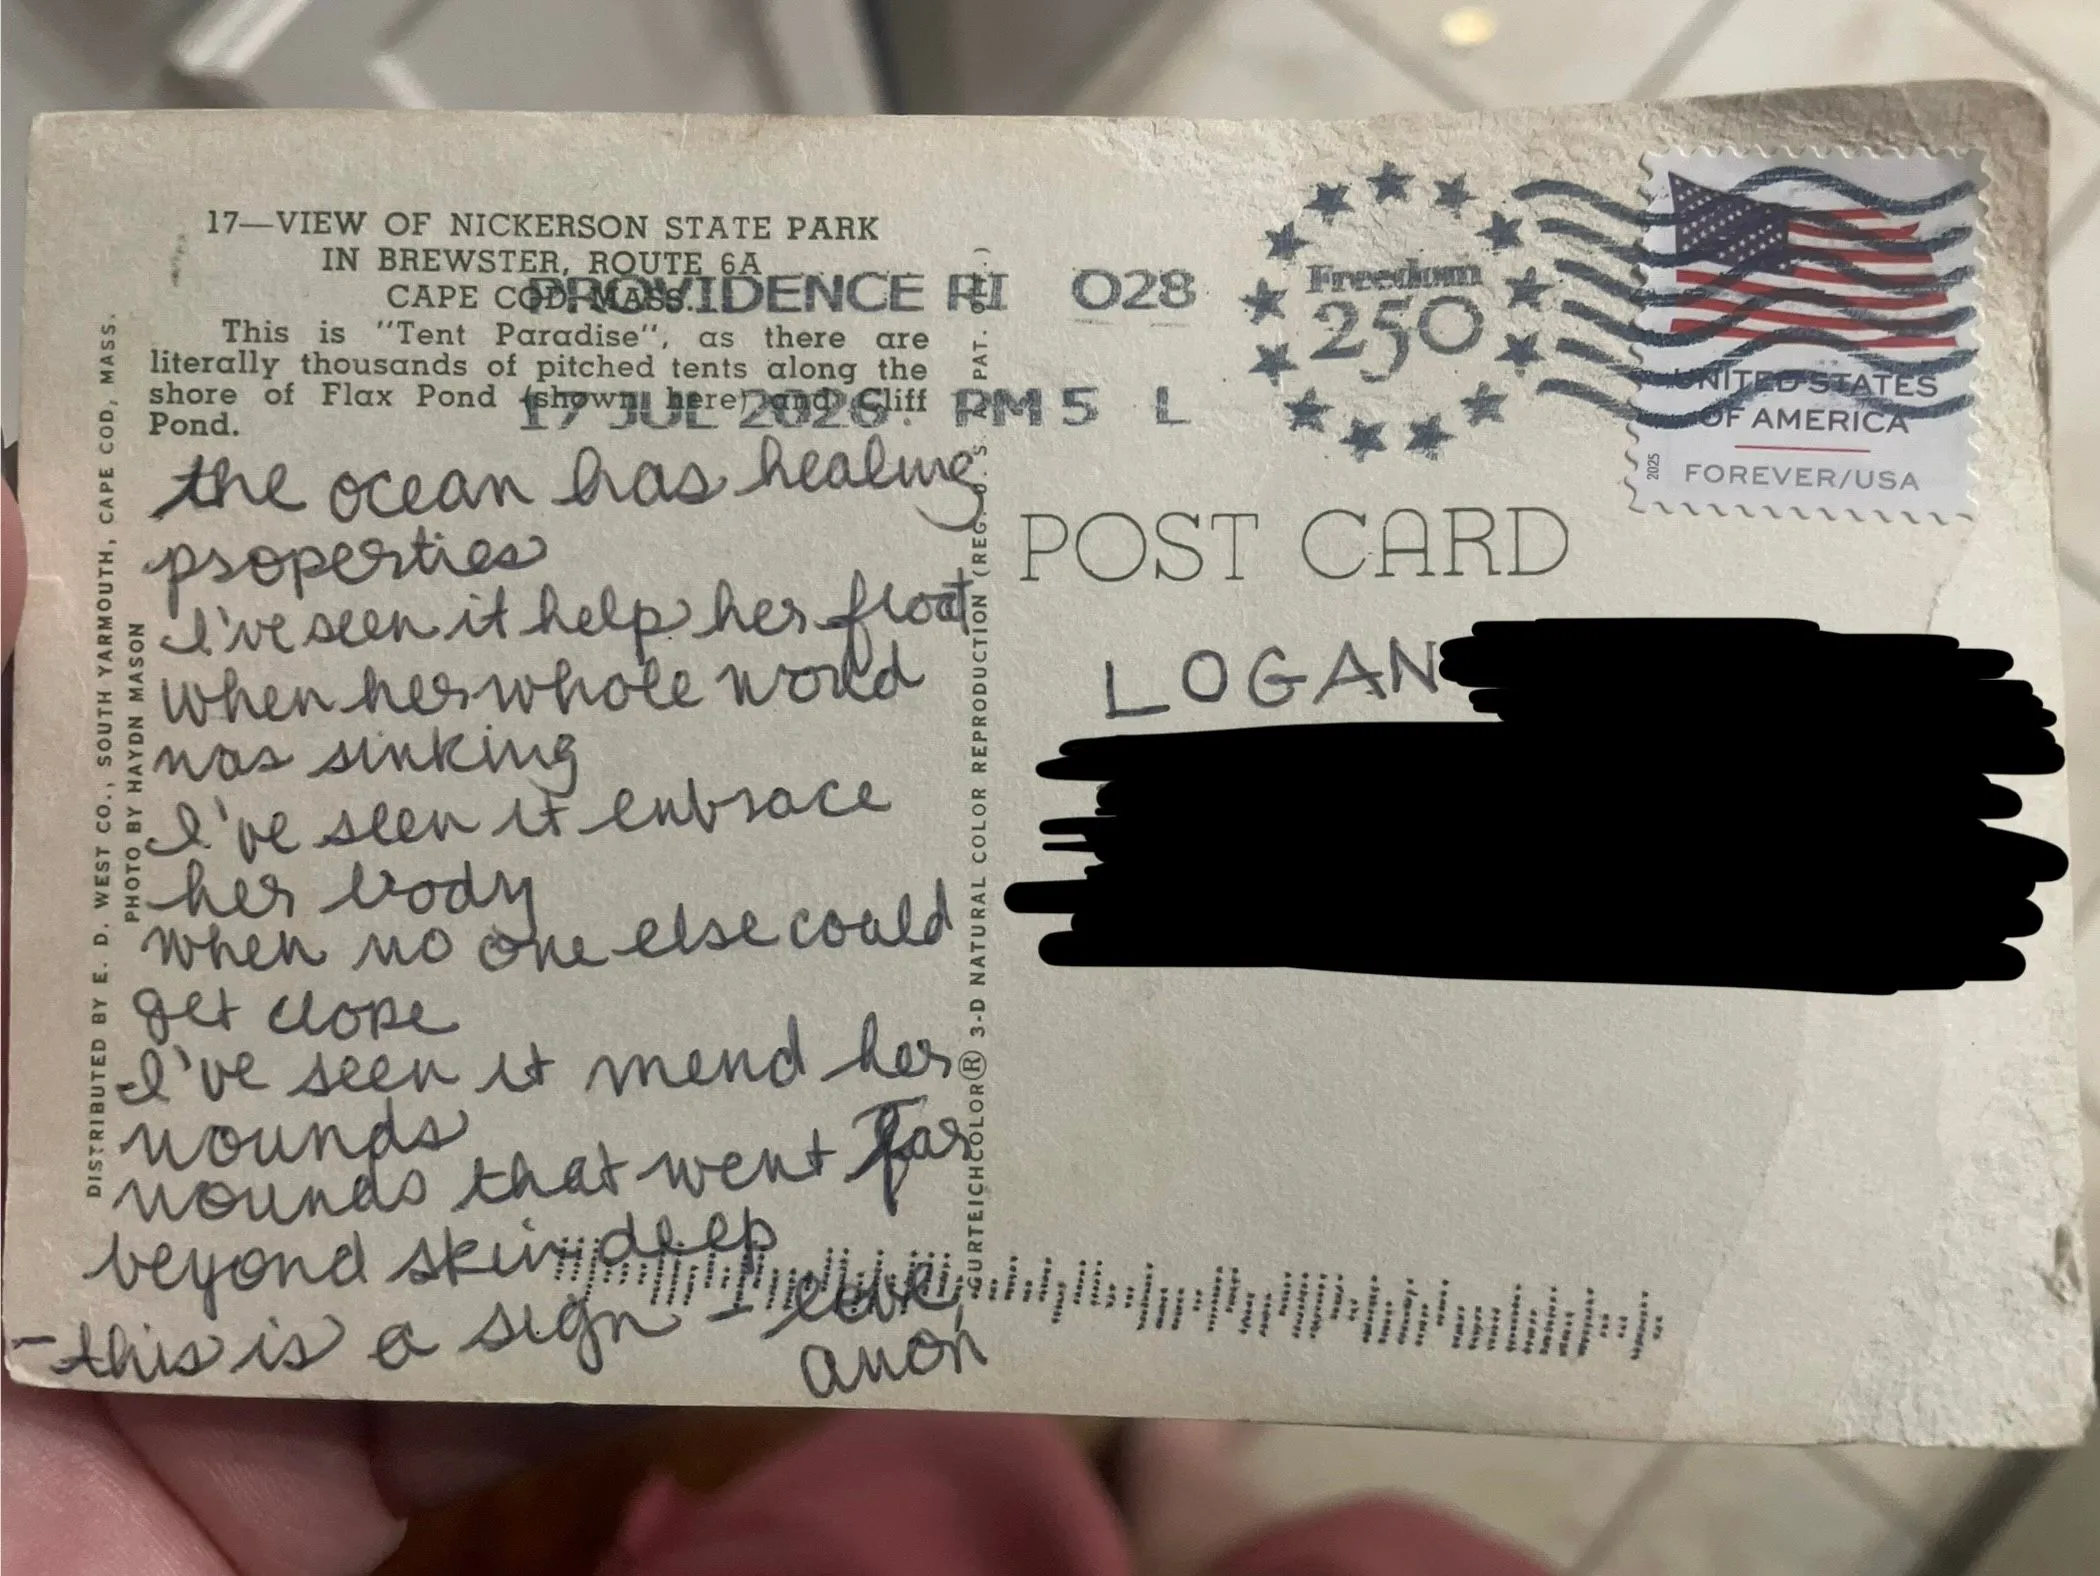 17—VIEW OF NICKERSON STATE PARK
IN BREWSTER, ROUTE 6A
CAPE COD, MASS.
This is "Tent Paradise", as there are
literally thousands of pitched tents along the
shore of Flax Pond (shown here) and Cliff
Pond.
PROVIDENCE RI 028
17 JUL 2026 PM 5 L
Freedom
250
UNITED STATES
OF AMERICA
FOREVER/USA
2025
DISTRIBUTED BY E. D. WEST CO., SOUTH YARMOUTH, CAPE COD, MASS.
PHOTO BY HAYDN MASON
the ocean has healing
properties
I've seen it help her float
when her whole world
was sinking
I've seen it embrace
her body
when no one else could
get close
I've seen it mend her
wounds
wounds that went far
beyond skin deep
- this is a sign - love,
anon
CURTEICHCOLOR® 3-D NATURAL COLOR REPRODUCTION (REG. U.S.A. PAT. OFF.)
POST CARD
LOGAN